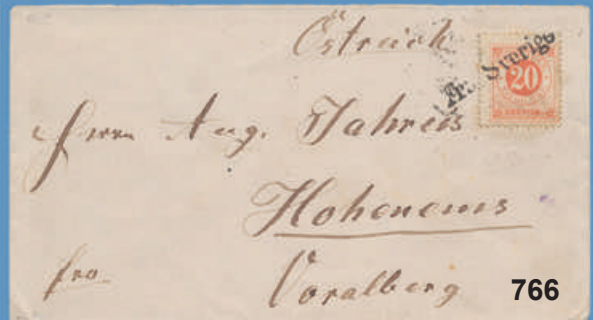 Östreich
Fra Sverige
20
Herrn Aug. Jahreis
Hohenems
fro
Voralberg
766